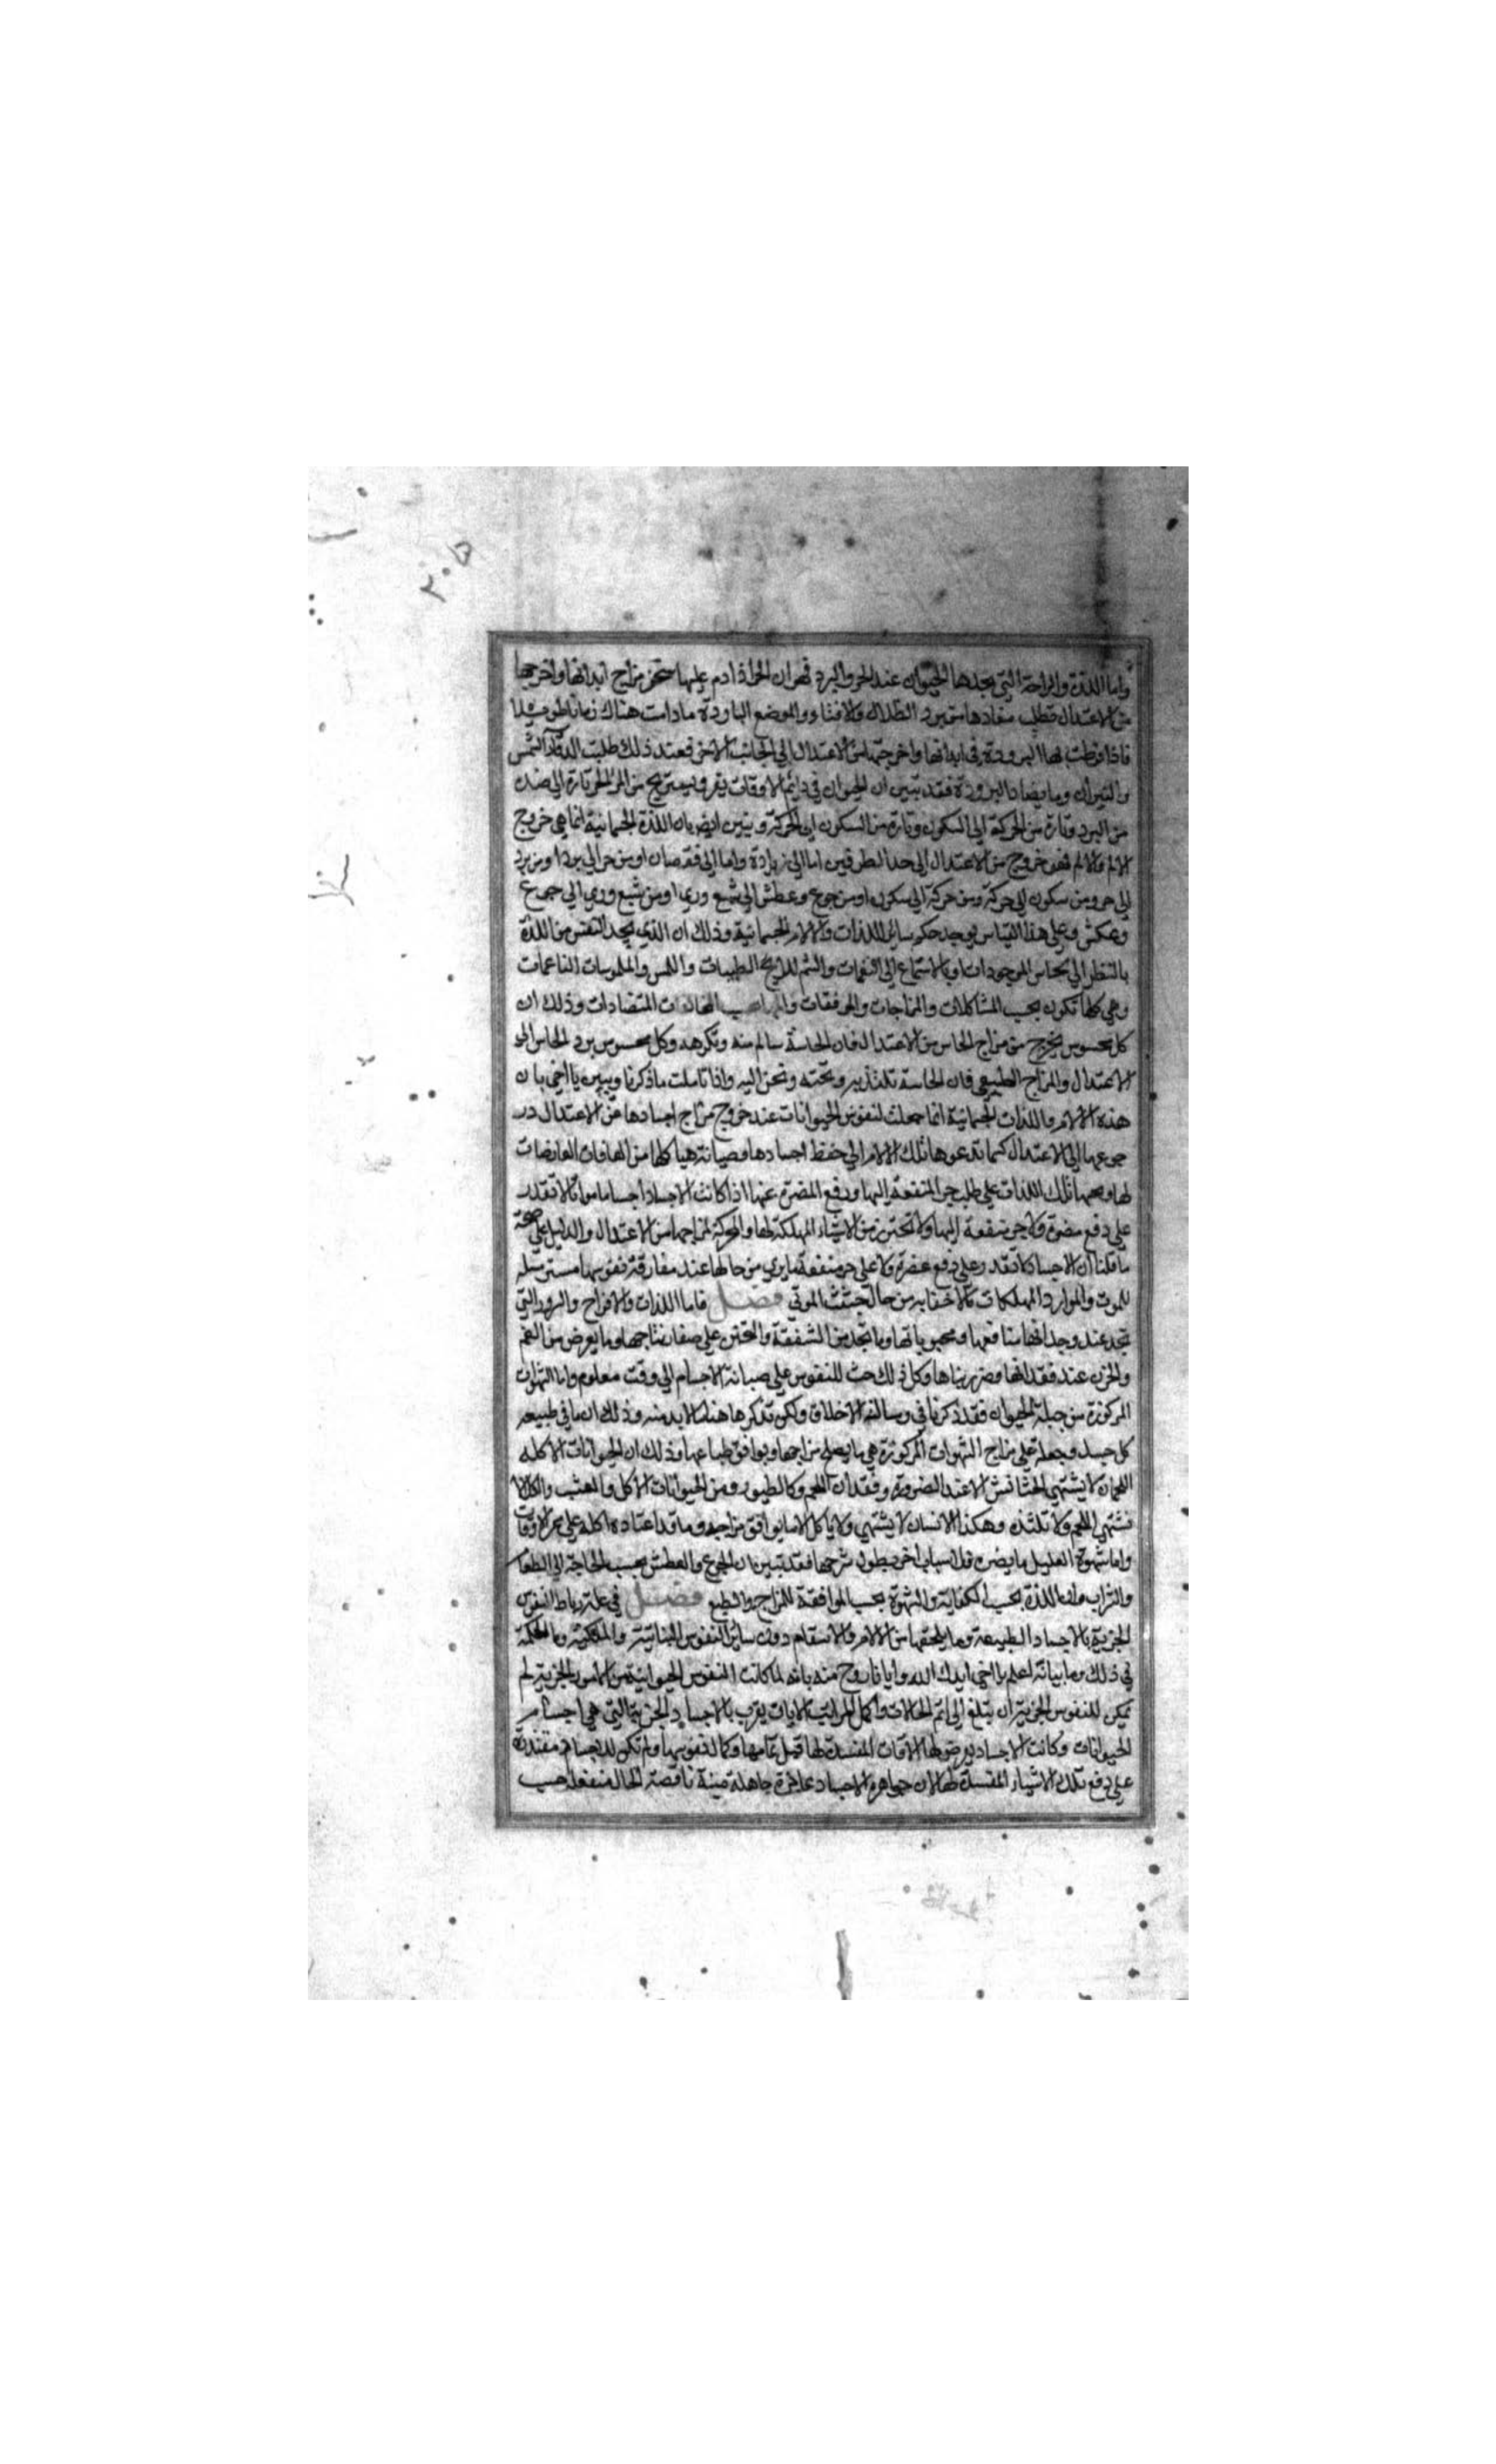 ٢٠٥
واما اللذة والراحة التي يجدها الحيوان عند الحر والبرد فهوان الحر اذا دام عليها سخن مزاج ابدانها واخرجها
من الاعتدال فطلب برد الظلال والافناء والموضع الباردة مادامت هناك زمانا طويلا
فاذا فرطت لها البرودة في ابدانها واخرجتها من الاعتدال الى الجانب الاخر فعند ذلك طلبت الشمس
والنيران وما يضاد البرودة فقد تبين ان الحيوان في دايم الاوقات من الحر تارة الى ضده
من البرد وتارة من الحركة الى السكون وتارة من السكون الى الحركة وتبين ايضا بان اللذة الجسمانية انما هي خروج
الالم والالم فهو خروج من الاعتدال الى حد الطرفين اما الى زيادة واما الى نقصان او من حر الى برد او من برد
الى حر ومن سكون الى حركة ومن حركة الى سكون او من جوع وعطش الى شبع وري او من شبع وري الى جوع
وعطش وعلى هذا القياس يوجد حكم ساير اللذات والالام الجسمانية وذلك ان الذي يجد النفس من اللذة
بالنظر الى محاسن الموجودات وبالاستماع الى النغمات والشم للرايح الطيبات واللمس والملموسات الناعمات
وهي كلها تكون بحسب المشاكلات والمزاجات والموفقات المتضادات وذلك ان
كل محسوس يخرج من مزاج الحاس من الاعتدال فان الحاسة تالم منه وتكرهه وكل محسوس يرد الحاس الى
الاعتدال والمزاج الطبيعي فان الحاسة تلتذ به وتحبه وتحن اليه واذا تاملت ما ذكرنا وتبين يا اخي بان
هذه الالام واللذات الجسمانية انما جعلت لنفوس الحيوانات عند خروج مزاج اجسادها عن الاعتدال ور
جوعها الى الاعتدال كيما تدعوها تلك الالام الى حفظ اجسادها وصيانة هياكلها من العارضات
لها تلك اللذات على طلب جر المنفعة اليها ودفع المضرة عنها اذا كانت الاجساد اجساما مواتا لا تقدر
على دفع مضرة ولا جر منفعة اليها ولا تحترز من الاشياء المهلكة لها لمزاجها من الاعتدال والدليل على صحة
ما قلنا ان الاجساد لا تقدر على دفع مضرة ولا على جر منفعة ما يرى من حالها عند مفارقة نفوسها مسترسلة
للموت والموارد المهلكات كما لا خفا به من حال جثث الموتى فصل فاما اللذات والافراح والسرور التي
تجد عند وجدانها منافعها ومحبوباتها وما تجد من الشفقة والتحنن على صغار نتاجها وما يعرض من الغم
والحزن عند فقدانها وكل ذلك حث للنفوس على صيانة الاجسام الى وقت معلوم واما الشهوات
المركوزة من جبلة الحيوان فقد ذكرنا في رسالة الاخلاق ولكن نذكرها هنا ما لا بد منه وذلك ان ما في طبيعه
كل جسد وجعلة على مزاج الشهوات المركوزة هي ما يصلح مزاجها ويوافق طباعها وذلك ان الحيوانات الاكله
اللحمان لا يشتهي الحشايش الا عند الضرورة وفقدان اللحم وكالطيور ومن الحيوانات الاكل والعشب والكلا لا
تشتهي اللحم ولا تلتذه وهكذا الانسان لا يشتهي ولا ياكل الا ما يوافق مزاجه وما قد اعتاده اكله على مر الاوقات
واما شهوة العليل ما يضره فلاسباب اخر يطول شرحها فقد تبين ان الجوع والعطش بحسب الحاجة الى الطعام
والشراب وان اللذة بحسب الكفاية والشهوة بحسب الموافقة للمزاج والطبع فصل في علة رباط النفوس
الجزيية بالاجساد الطبيعية وما يلحقها من الالام والاسقام دون ساير النفوس النباتية والملكية وما الحكمة
في ذلك وما بيانه اعلم يا اخي ايدك الله وايانا بروح منه بانه لما كانت النفوس الحيوانية من الجزيية لم
يمكن للنفوس الجزيية ان تبلغ الى اتم الحالات واكمل المراتب بالاجساد الجزيية التي هي اجسام
الحيوانات وكانت الاجساد يعرض لها الافات المفسدة لها قبل تمامها وكمال نفوسها ولم تكن للاجسام مقتدرة
على دفع تلك الاشياء المفسدة لها لان جواهر الاجساد عاجزة جاهلة ميتة ناقصة الحال منفعلة حسب